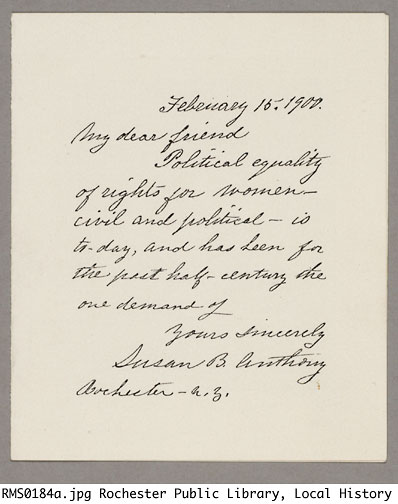 February 15, 1900.
My dear friend
Political equality
of rights for women—
civil and political — is
to-day, and has been for
the past half-century the
one demand of
Yours sincerely
Susan B. Anthony
Rochester — N.Y.
RMS0184a.jpg Rochester Public Library, Local History